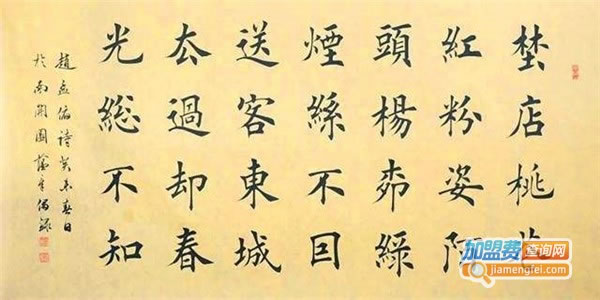 埜店桃花
紅粉姿陌
頭楊柳綠
煙絲不因
送客東城
厺過却春
光総不知
趙孟俯詩癸未春日
於南開園
加盟费查询网
jiamengfei.com